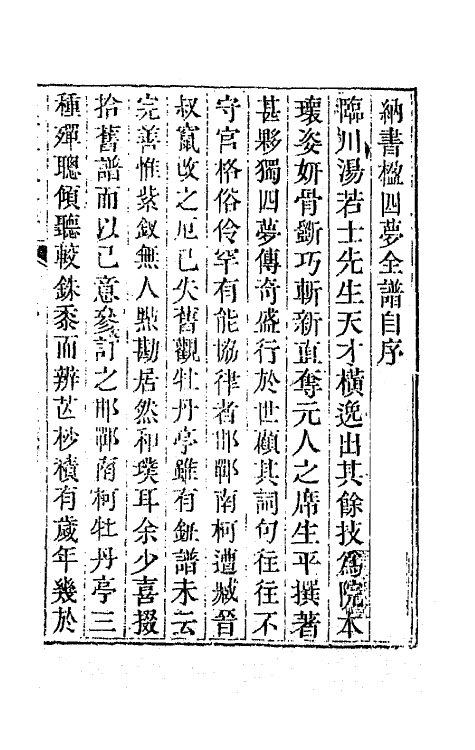 納書楹四夢全譜自序
臨川湯若士先生天才橫逸出其餘技爲院本
瓌姿妍骨斵巧斬新直奪元人之席生平撰著
甚夥獨四夢傳奇盛行於世顧其詞句往往不
守宫格俗伶罕有能協律者邯鄲南柯遭臧晉
叔竄改之厄已失舊觀牡丹亭雖有鈕譜未云
完善惟紫釵無人㸃勘居然和璞耳余少喜掇
拾舊譜而以己意叅訂之邯鄲南柯牡丹亭三
種殫聰傾聽較銖黍而辨芒杪積有歲年幾於